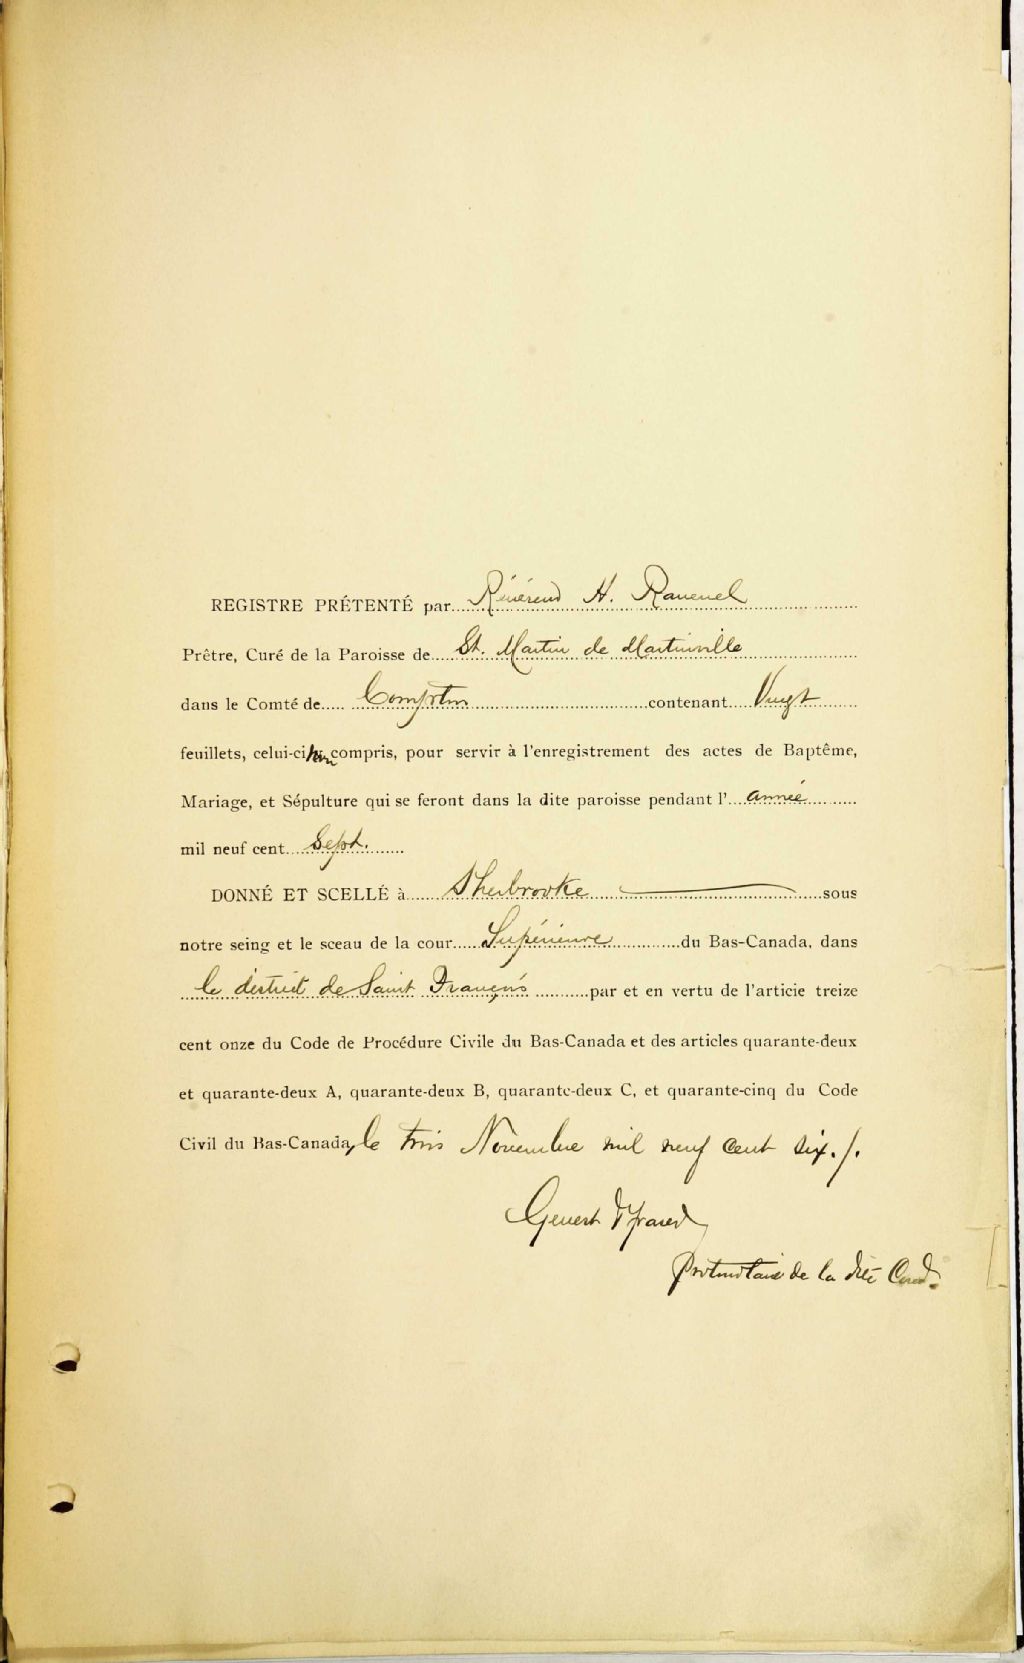 REGISTRE PRÉTENTÉ par Révérend H. Ravenel
Prêtre, Curé de la Paroisse de St. Martin de Martinville
dans le Comté de Compton contenant Vingt
feuillets, celui-ci non compris, pour servir à l'enregistrement des actes de Baptême,
Mariage, et Sépulture qui se feront dans la dite paroisse pendant l' année
mil neuf cent Sept.
DONNÉ ET SCELLÉ à Sherbrooke sous
notre seing et le sceau de la cour Supérieure du Bas-Canada, dans
le district de Saint François par et en vertu de l'articie treize
cent onze du Code de Procédure Civile du Bas-Canada et des articles quarante-deux
et quarante-deux A, quarante-deux B, quarante-deux C, et quarante-cinq du Code
Civil du Bas-Canada, le trois Novembre mil neuf cent six./.
Genest
Protonotaire de la dite Cour.